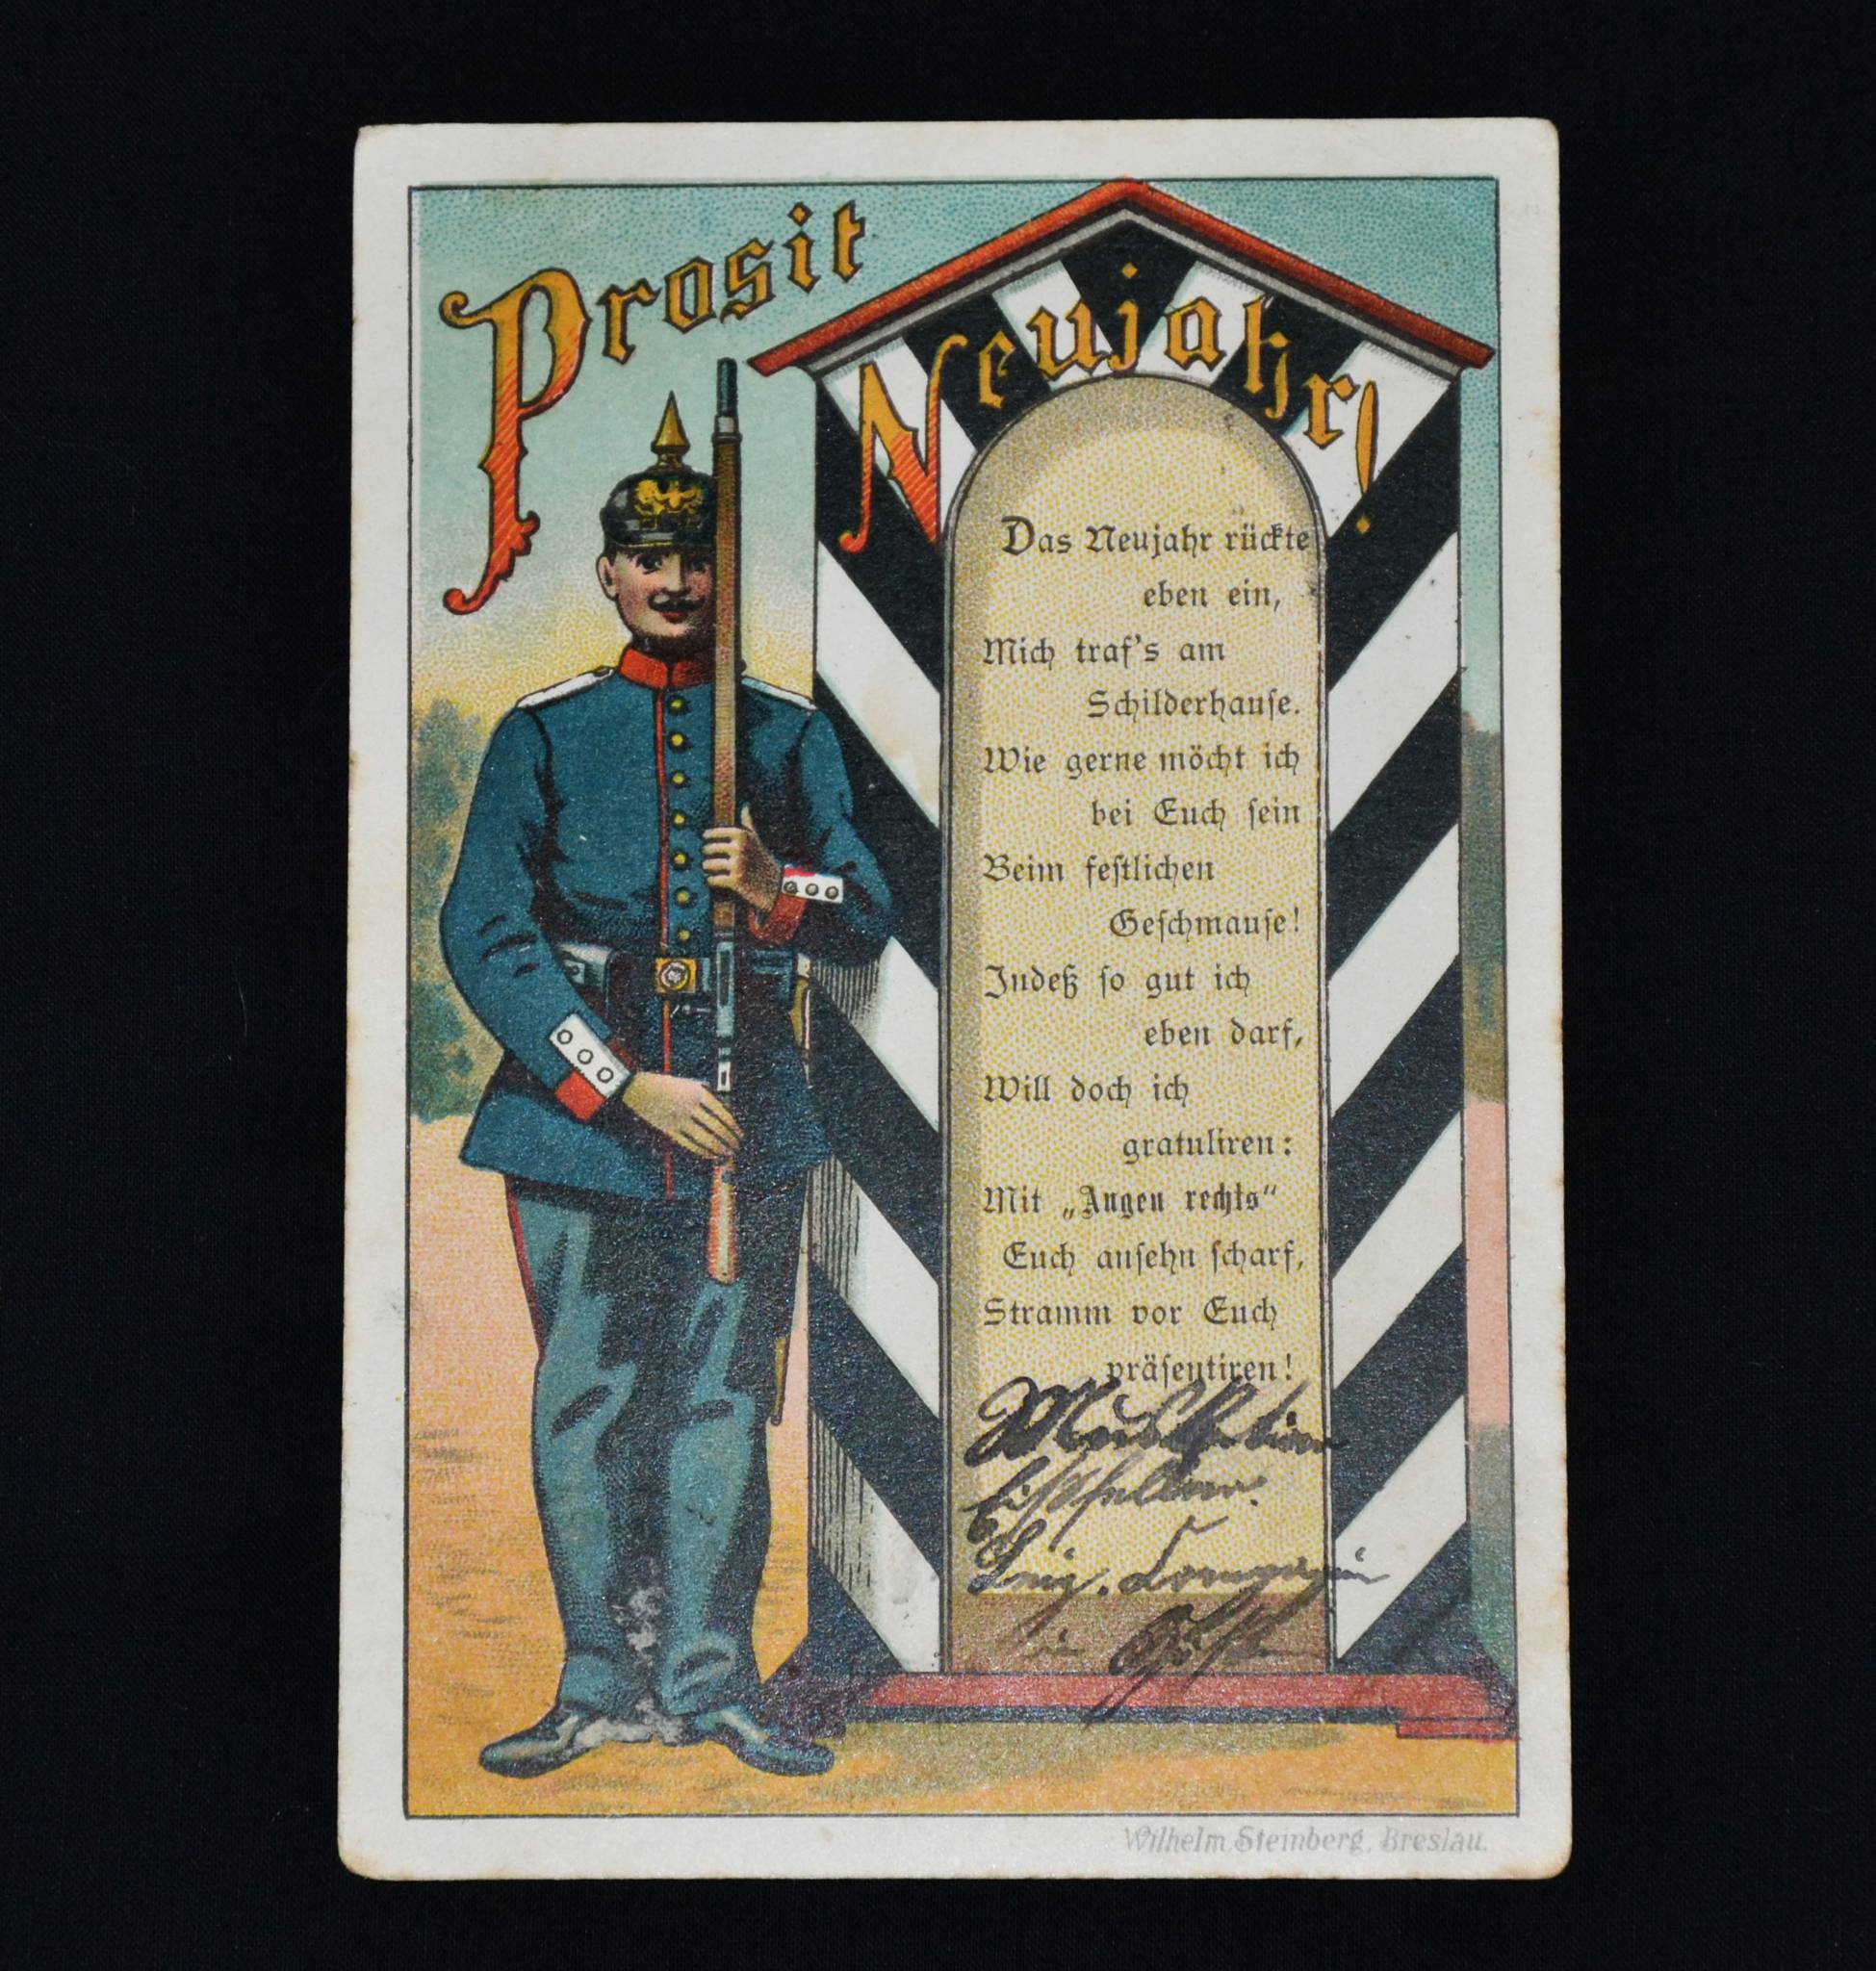 Prosit
Neujahr!
Das Neujahr rückte
eben ein,
Mich traf's am
Schilderhauſe.
Wie gerne möcht ich
bei Euch ſein
Beim feſtlichen
Geſchmauſe!
Indeß ſo gut ich
eben darf,
Will doch ich
gratuliren:
Mit „Augen rechts“
Euch anſehn ſcharf,
Stramm vor Euch
präſentiren!
in
Wilhelm Steinberg, Breslau.